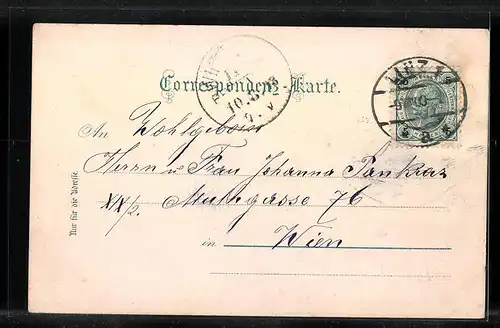 Correspondenz-Karte.
An Wohlgeboren
Herrn u Frau Johanna Pankraz
XX/2. 76
in Wien
Nur für die Adresse.
10.8.03